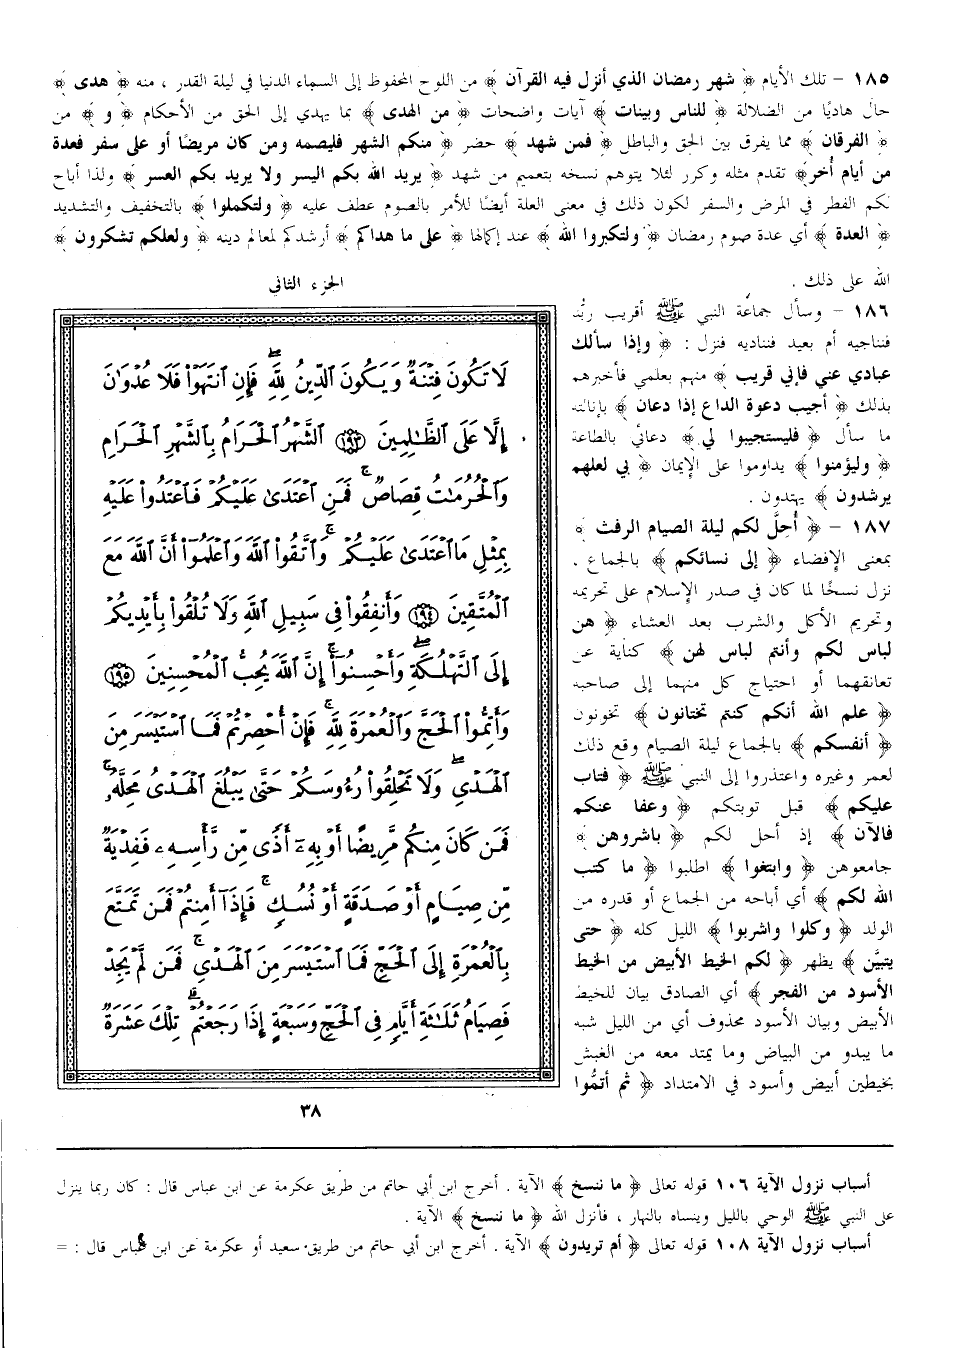 ١٨٥ – تلك الأيام ﴿ شهر رمضان الذي أنزل فيه القرآن ﴾ من اللوح المحفوظ إلى السماء الدنيا في ليلة القدر ، منه ﴿ هدى ﴾
حال هاديًا من الضلالة ﴿ للناس وبينات ﴾ آيات واضحات ﴿ من الهدى ﴾ بما يهدي إلى الحق من الأحكام ﴿ و ﴾ من
﴿ الفرقان ﴾ مما يفرق بين الحق والباطل ﴿ فمن شهد ﴾ حضر ﴿ منكم الشهر فليصمه ومن كان مريضًا أو على سفر فعدة
من أيام أُخر ﴾ تقدم مثله وكرر لئلا يتوهم نسخه بتعميم من شهد ﴿ يريد الله بكم اليسر ولا يريد بكم العسر ﴾ ولذا أباح
لكم الفطر في المرض والسفر لكون ذلك في معنى العلة أيضًا للأمر بالصوم عطف عليه ﴿ ولتكملوا ﴾ بالتخفيف والتشديد
﴿ العدة ﴾ أي عدة صوم رمضان ﴿ ولتكبروا الله ﴾ عند إكمالها ﴿ على ما هداكم ﴾ أرشدكم لمعالم دينه ﴿ ولعلكم تشكرون ﴾
الله على ذلك .
١٨٦ – وسأل جماعة النبي ﷺ أقريب ربُّنا
فنناجيه أم بعيد فنناديه فنزل : ﴿ وإذا سألك
عبادي عني فإني قريب ﴾ منهم بعلمي فأخبرهم
بذلك ﴿ أجيب دعوة الداع إذا دعان ﴾ بإنالته
ما سأل ﴿ فليستجيبوا لي ﴾ دعائي بالطاعة
﴿ وليؤمنوا ﴾ يداوموا على الإيمان ﴿ بي لعلهم
يرشدون ﴾ يهتدون .
١٨٧ – ﴿ أُحِلَّ لكم ليلة الصيام الرفث ﴾
بمعنى الإفضاء ﴿ إلى نسائكم ﴾ بالجماع ،
نزل نسخًا لما كان في صدر الإسلام على تحريمه
وتحريم الأكل والشرب بعد العشاء ﴿ هن
لباس لكم وأنتم لباس لهن ﴾ كناية عن
تعانقهما أو احتياج كل منهما إلى صاحبه
﴿ علم الله أنكم كنتم تختانون ﴾ تخونون
﴿ أنفسكم ﴾ بالجماع ليلة الصيام وقع ذلك
لعمر وغيره واعتذروا إلى النبي ﷺ ﴿ فتاب
عليكم ﴾ قبل توبتكم ﴿ وعفا عنكم
فالآن ﴾ إذ أحل لكم ﴿ باشروهن ﴾
جامعوهن ﴿ وابتغوا ﴾ اطلبوا ﴿ ما كتب
الله لكم ﴾ أي أباحه من الجماع أو قدره من
الولد ﴿ وكلوا واشربوا ﴾ الليل كله ﴿ حتى
يتبيَّن ﴾ يظهر ﴿ لكم الخيط الأبيض من الخيط
الأسود من الفجر ﴾ أي الصادق بيان للخيط
الأبيض وبيان الأسود محذوف أي من الليل شبه
ما يبدو من البياض وما يمتد معه من الغبش
بخيطين أبيض وأسود في الامتداد ﴿ ثم أتمُّوا
الجزء الثاني
لَا تَكُونَ فِتْنَةٌ وَيَكُونَ ٱلدِّينُ لِلَّهِ ۖ فَإِنِ ٱنتَهَوْا۟ فَلَا عُدْوَٰنَ
إِلَّا عَلَى ٱلظَّـٰلِمِينَ ١٩٣ ٱلشَّهْرُ ٱلْحَرَامُ بِٱلشَّهْرِ ٱلْحَرَامِ
وَٱلْحُرُمَـٰتُ قِصَاصٌ ۚ فَمَنِ ٱعْتَدَىٰ عَلَيْكُمْ فَٱعْتَدُوا۟ عَلَيْهِ
بِمِثْلِ مَا ٱعْتَدَىٰ عَلَيْكُمْ ۚ وَٱتَّقُوا۟ ٱللَّهَ وَٱعْلَمُوٓا۟ أَنَّ ٱللَّهَ مَعَ
ٱلْمُتَّقِينَ ١٩٤ وَأَنفِقُوا۟ فِى سَبِيلِ ٱللَّهِ وَلَا تُلْقُوا۟ بِأَيْدِيكُمْ
إِلَى ٱلتَّهْلُكَةِ ۖ وَأَحْسِنُوٓا۟ ۚ إِنَّ ٱللَّهَ يُحِبُّ ٱلْمُحْسِنِينَ ١٩٥
وَأَتِمُّوا۟ ٱلْحَجَّ وَٱلْعُمْرَةَ لِلَّهِ ۚ فَإِنْ أُحْصِرْتُمْ فَمَا ٱسْتَيْسَرَ مِنَ
ٱلْهَدْىِ ۖ وَلَا تَحْلِقُوا۟ رُءُوسَكُمْ حَتَّىٰ يَبْلُغَ ٱلْهَدْىُ مَحِلَّهُۥ ۚ
فَمَن كَانَ مِنكُم مَّرِيضًا أَوْ بِهِۦٓ أَذًى مِّن رَّأْسِهِۦ فَفِدْيَةٌ
مِّن صِيَامٍ أَوْ صَدَقَةٍ أَوْ نُسُكٍ ۚ فَإِذَآ أَمِنتُمْ فَمَن تَمَتَّعَ
بِٱلْعُمْرَةِ إِلَى ٱلْحَجِّ فَمَا ٱسْتَيْسَرَ مِنَ ٱلْهَدْىِ ۚ فَمَن لَّمْ يَجِدْ
فَصِيَامُ ثَلَـٰثَةِ أَيَّامٍ فِى ٱلْحَجِّ وَسَبْعَةٍ إِذَا رَجَعْتُمْ ۗ تِلْكَ عَشَرَةٌ
٣٨
أسباب نزول الآية ١٠٦ قوله تعالى ﴿ ما ننسخ ﴾ الآية . أخرج ابن أبي حاتم من طريق عكرمة عن ابن عباس قال : كان ربما ينزل
على النبي ﷺ الوحي بالليل وينساه بالنهار ، فأنزل الله ﴿ ما ننسخ ﴾ الآية .
أسباب نزول الآية ١٠٨ قوله تعالى ﴿ أم تريدون ﴾ الآية . أخرج ابن أبي حاتم من طريق سعيد أو عكرمة عن ابن عباس قال : =